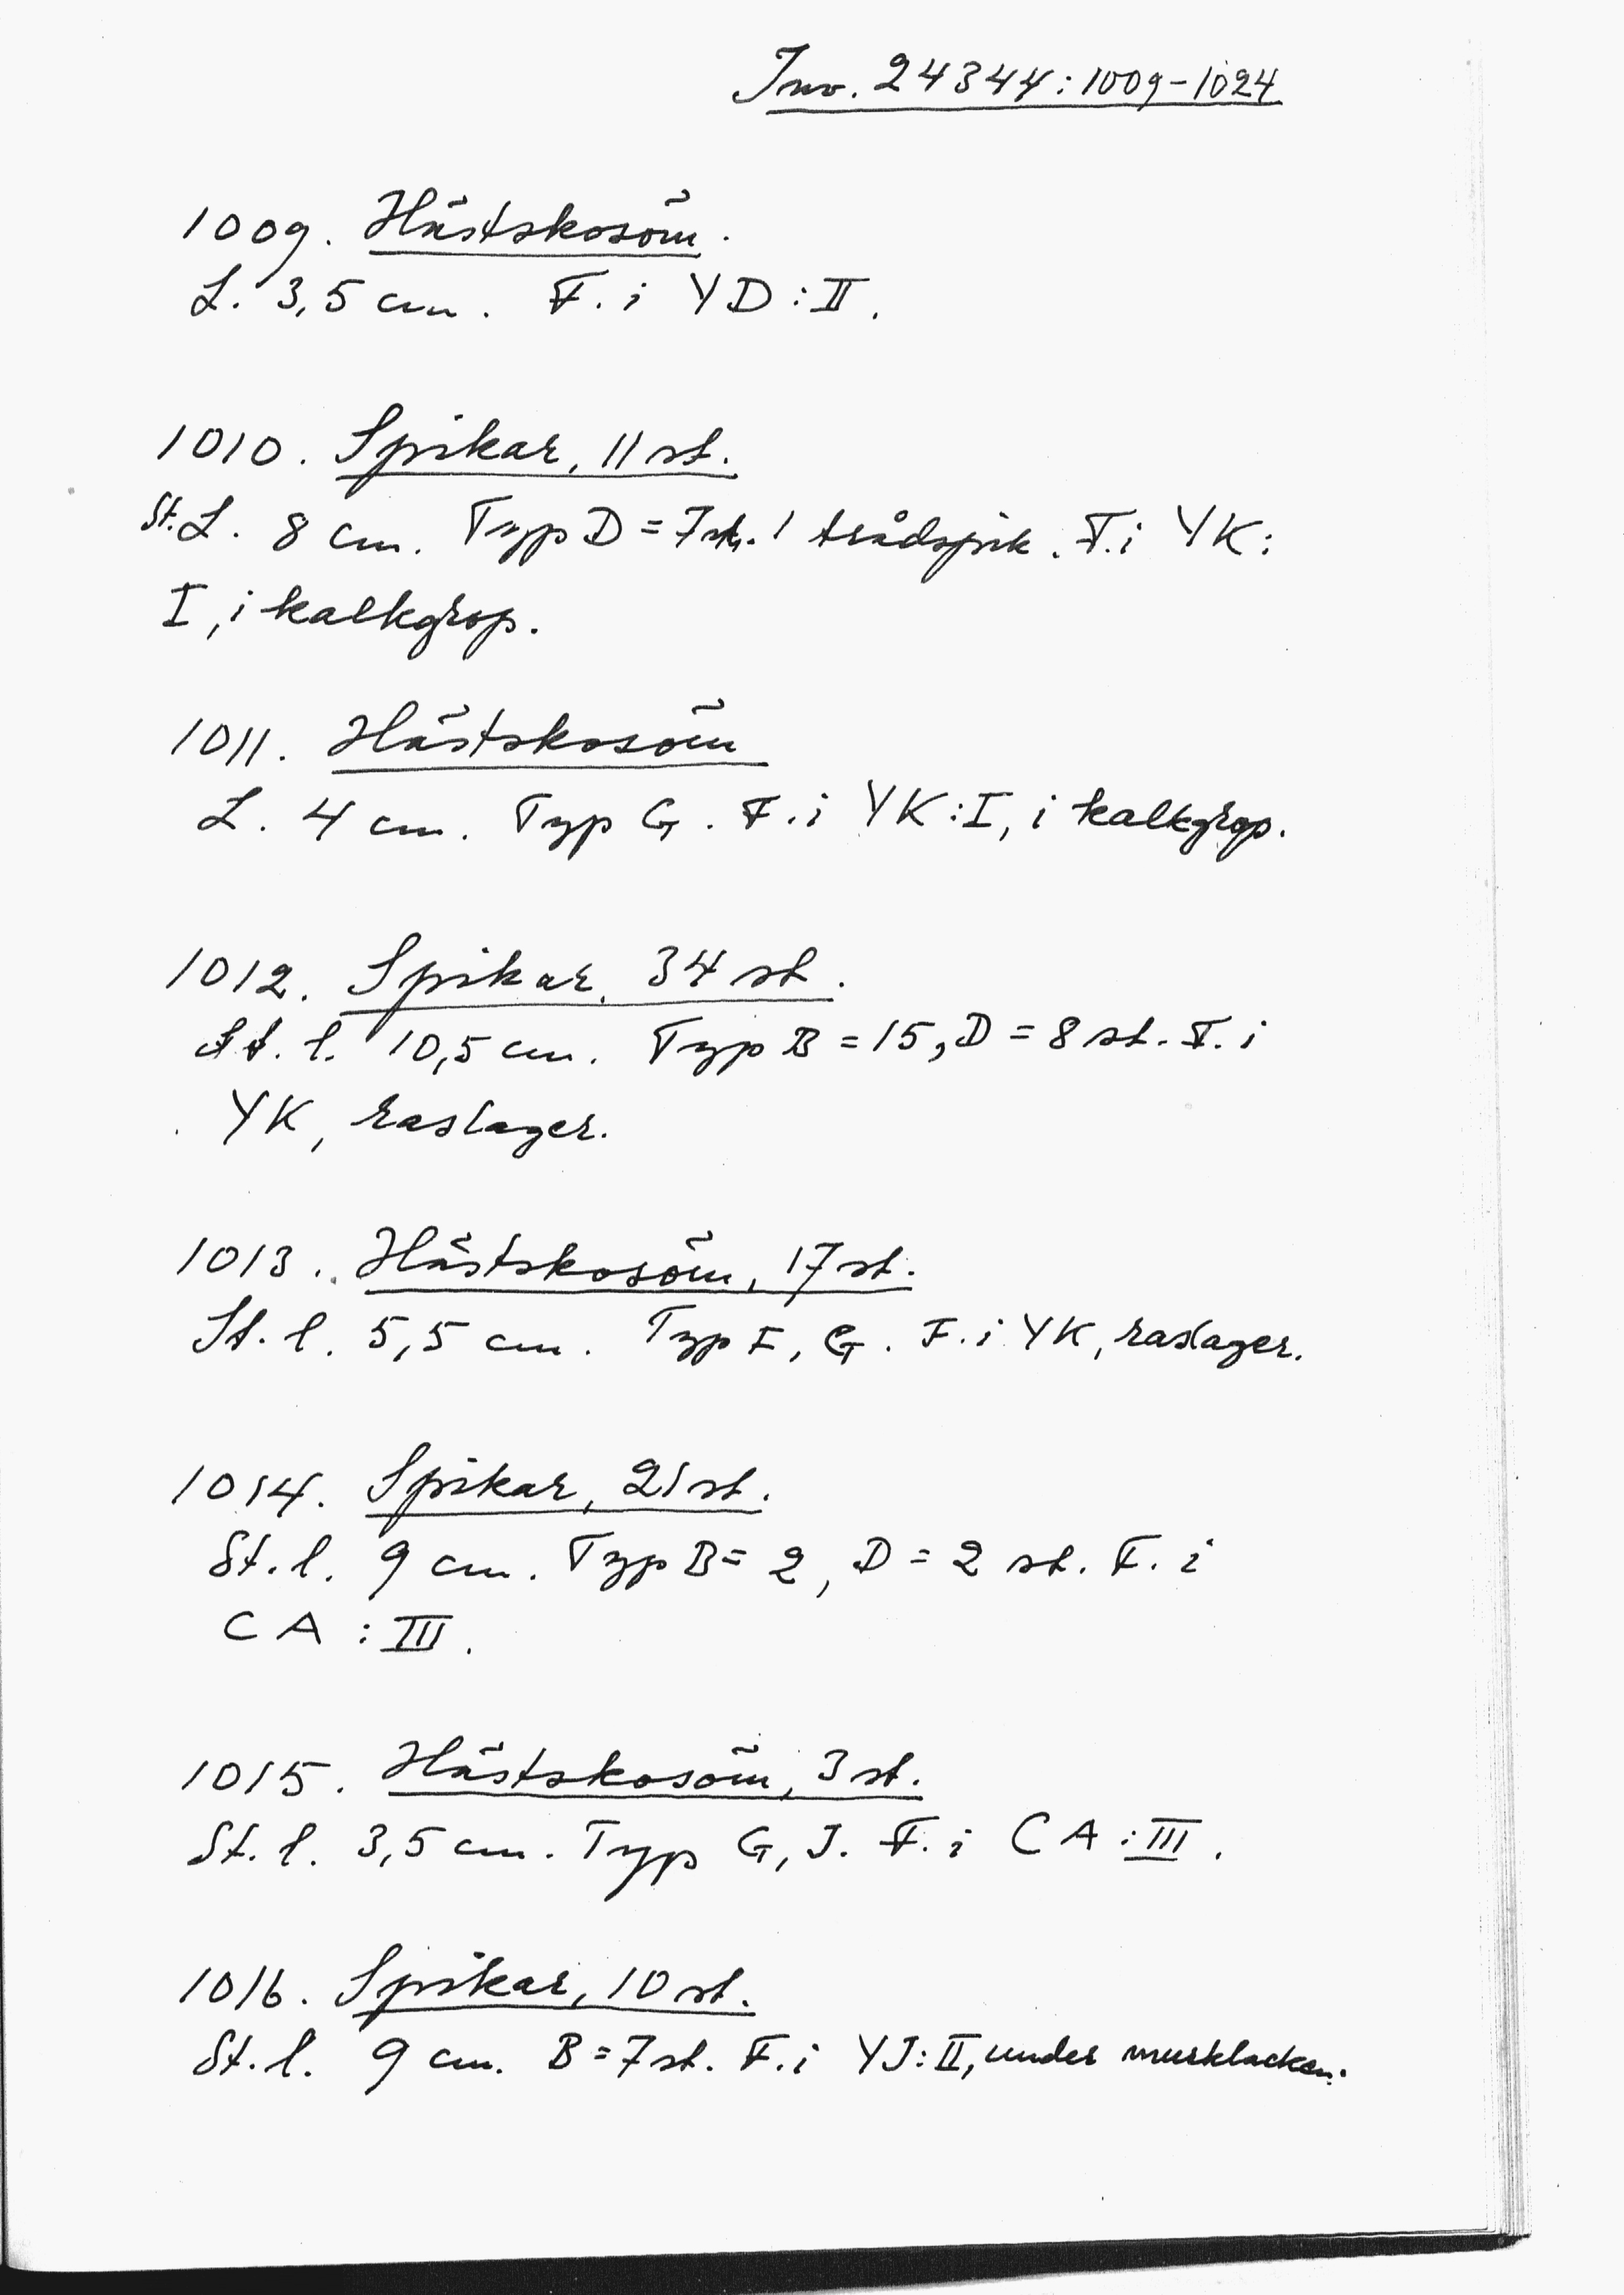 Inv. 24344:1009-1024
1009. Hästskosöm.
L. 3,5 cm. F. i YD:II.
1010. Spikar, 11 st.
St. L. 8 cm. Typ D = 7 st. 1 trådspik. F. i YK:
I, i kalkgrop.
1011. Hästskosöm
L. 4 cm. Typ G. F. i YK:I, i kalkgrop.
1012. Spikar, 34 st.
St. l. 10,5 cm. Typ B = 15, D = 8 st. F. i
YK, raslager.
1013. Hästskosöm, 17 st.
St. l. 5,5 cm. Typ F, G. F. i YK, raslager.
1014. Spikar, 21 st.
St. l. 9 cm. Typ B = 2, D = 2 st. F. i
CA:III.
1015. Hästskosöm, 3 st.
St. l. 3,5 cm. Typ G, J. F. i CA:III.
1016. Spikar, 10 st.
St. l. 9 cm. B = 7 st. F. i YJ:II, under murklacken.